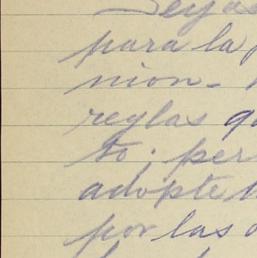 para la
nion-
reglas q
to; per
adopte
por las